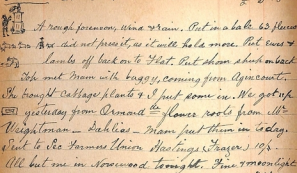 A rough forenoon, wind & rain. Put in a bale 63 fleeces
did not press it, as it will hold more. Put ewes &
lambs off back on to Flat. Put shorn sheep on back
Top met Mam with buggy, coming from Agincourt.
She brought cabbage plants & I put some in. We got up
yesterday from Ormond the flower roots from Mr
Weightman - Dahlias - Mam put them in today.
Sent to Sec Farmers Union Hastings (Frazer) 10/-.
All but me in Norsewood tonight. Fine & moonlight